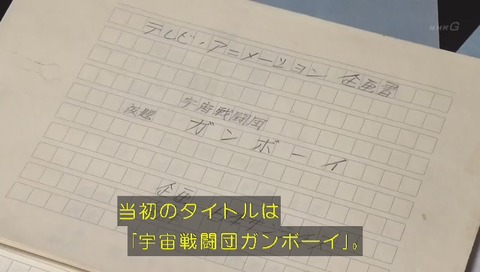 NHK G
テレビ・アニメーション 企画書
宇宙戦闘団
仮題 ガンボーイ
当初のタイトルは
「宇宙戦闘団ガンボーイ」。